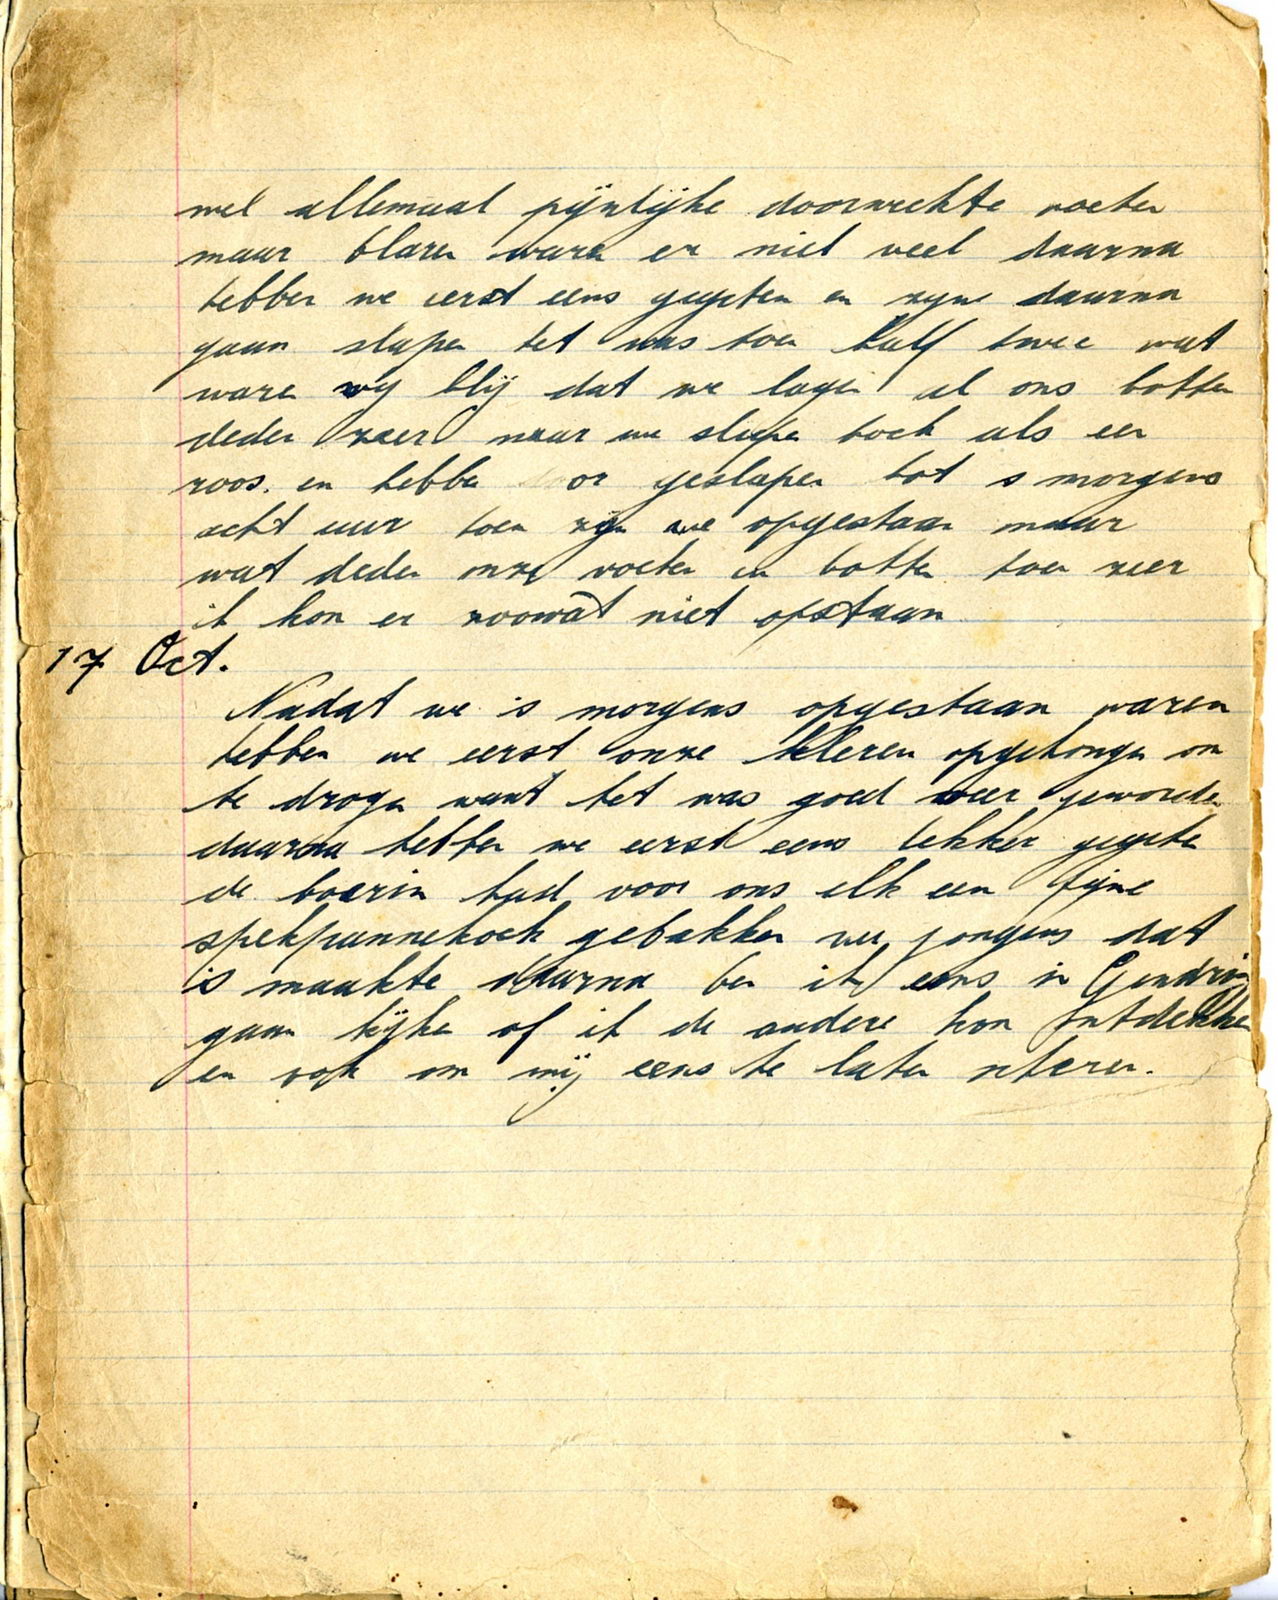 wel allemaal pijnlijke doorweekte voeten
maar blaren waren er niet veel daarna
hebben we eerst eens gegeten en zijne daarna
gaan slapen het was toen half twee wat
waren wij blij dat we lagen al ons botten
deden zeer maar we sliepen toch als een
roos. en hebben geslapen tot s morgens
acht uur toen zijn we opgestaan maar
wat deden onze voeten en botten toen zeer
ik kon er zoowat niet opstaan
17 Oct.
Nadat we s morgens opgestaan waren
hebben we eerst onze kleren opgehongen om
te drogen want het was goed weer geworden
daarna hebben we eerst eens lekker gegeten
de boerin had voor ons elk een fijne
spekpannekoek gebakken nee jongens dat
is maakte daarna ben ik eens in Gendrin
gaan kijken of ik de andere kon ontdekken
en ook om mij eens te laten scheren.